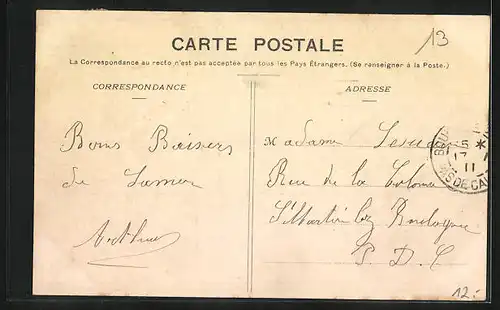 13
CARTE POSTALE
La Correspondance au recto n'est pas acceptée par tous les Pays Étrangers. (Se renseigner à la Poste.)
CORRESPONDANCE
ADRESSE
Bons Baisers
de Samer
Arthur
Madame
Rue de la Colonne
St Martin lez Boulogne
P. D. C
BOU
15 *
17
11
PAS DE CA
12.-